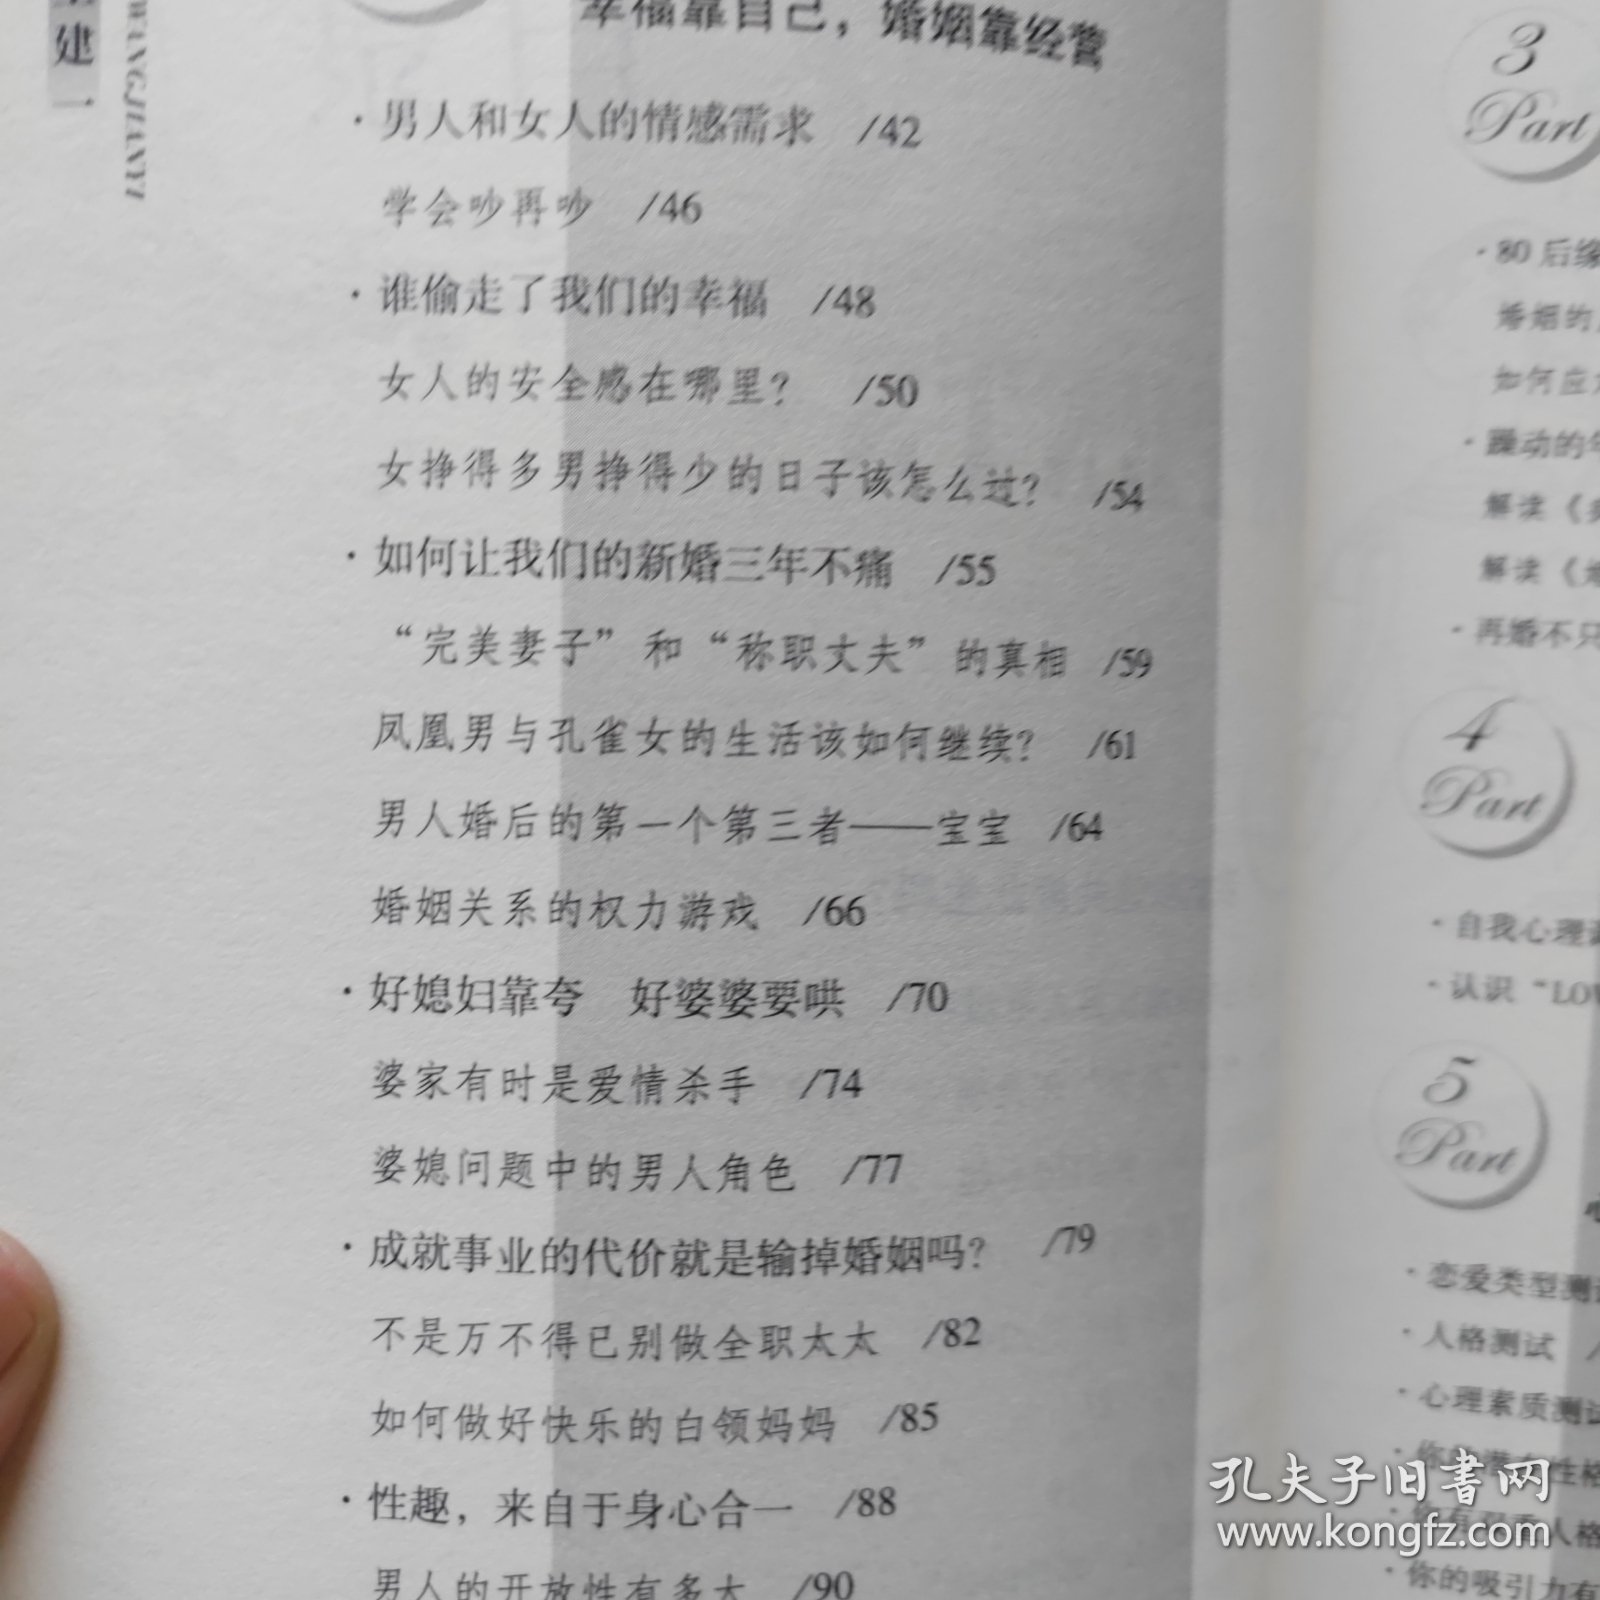 建一
幸福靠自己，婚姻靠经营
·男人和女人的情感需求 /42
学会吵再吵 /46
·谁偷走了我们的幸福 /48
女人的安全感在哪里？ /50
女挣得多男挣得少的日子该怎么过？ /54
·如何让我们的新婚三年不痛 /55
“完美妻子”和“称职丈夫”的真相 /59
凤凰男与孔雀女的生活该如何继续？ /61
男人婚后的第一个第三者——宝宝 /64
婚姻关系的权力游戏 /66
·好媳妇靠夸 好婆婆要哄 /70
婆家有时是爱情杀手 /74
婆媳问题中的男人角色 /77
·成就事业的代价就是输掉婚姻吗？ /79
不是万不得已别做全职太太 /82
如何做好快乐的白领妈妈 /85
·性趣，来自于身心合一 /88
男人的开放性有多大 /90
3
Part
·80后缘
婚姻的
如何应
·躁动的年
解读《
解读《
·再婚不只
4
Part
·自我心理
·认识“LOV
5
Part
·恋爱类型测试
·人格测试
·心理素质测试
性格
人格
·你的吸引力有
孔夫子旧书网
www.kongfz.com